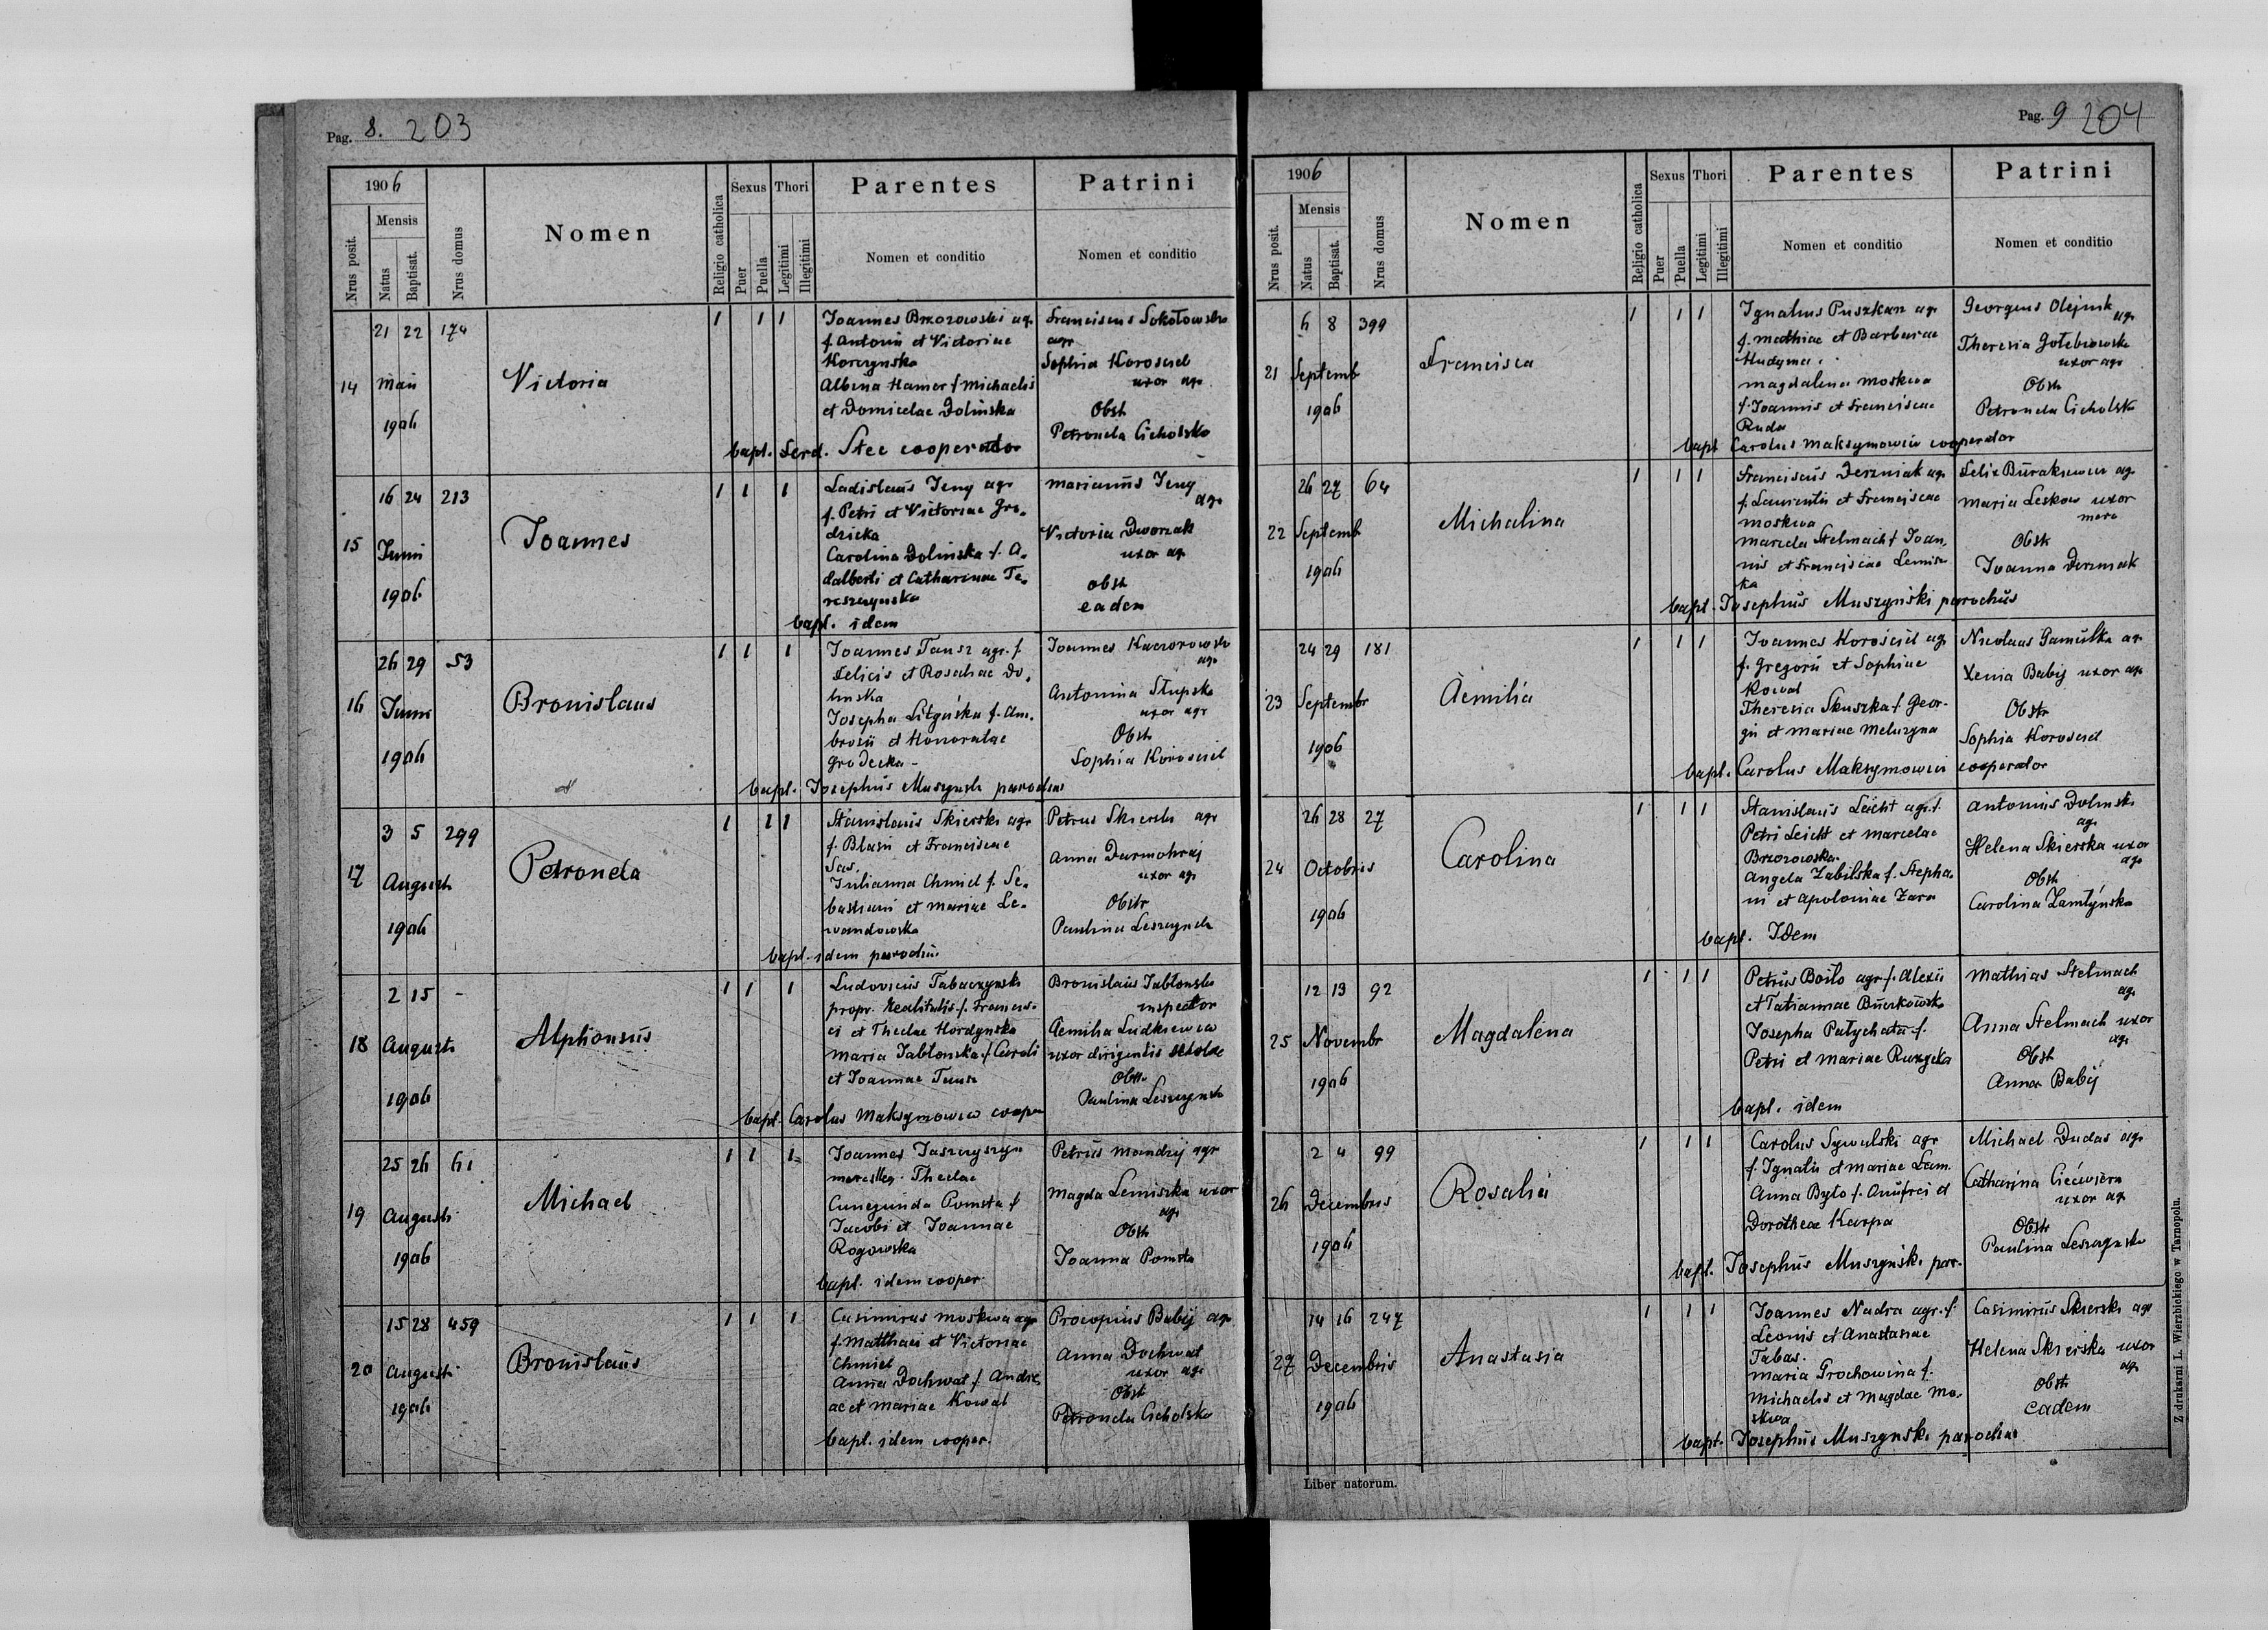 Pag. 8. 203
1906
Nrus posit.
Mensis
Natus
Baptisat.
Nrus domus
Nomen
Religio catholica
Sexus
Puer
Puella
Thori
Legitimi
Illegitimi
Parentes
Nomen et conditio
Patrini
Nomen et conditio
14
21 22 174
Maii
1906
Victoria
1 1 1
Joannes Brzozowski agr.
f. Antonii et Victoriae
Korczynska
Albina Hamer f. Michaelis
et Domicelae Dolinska
Franciscus Sokołowski
agr
Sophia Korosciel
uxor agr.
Obst
Petronela Cicholska
bapt. Ferd. Stec cooperator
15
16 24 213
Junii
1906
Joannes
1 1 1
Ladislaus Jeny agr
f. Petri et Victoriae Gro-
dzicka
Carolina Dolinska f. A-
dalberti et Catharinae Te-
reszczynska
Marianus Jeny
agr
Victoria Dworzak
uxor agr
obst
eadem
bapt. idem
16
26 29 53
Junii
1906
Bronislaus
1 1 1
Joannes Tausz agr. f
Felicis et Rosaliae Do-
linska
Josepha Litynska f. Am-
brosii et Honoratae
Grodecka -
Joannes Kaczorowski
agr
Antonina Słupska
uxor agr
Obst
Sophia Korosciel
bapt. Josephus Muszynski parochus
17
3 5 299
Augusti
1906
Petronela
1 1 1
Stanislaus Skierski agr
f. Blasii et Franciscae
Sas.
Julianna Chmiel f. Se-
bastiani et Mariae Le-
wandowska
Petrus Skierski agr
Anna Darmohraj
uxor agr
Obstr
Paulina Leszczynska
bapt. idem parochus
18
2 15 -
Augusti
1906
Alphonsus
1 1 1
Ludovicus Tabaczynski
propr. realitatis f. Francis-
ci et Theclae Hordynska
Maria Jablonska f. Caroli
et Joannae Tausz
Bronislaus Jablonski
inspector
Aemilia Ludkiewicz
uxor dirigentis scholae
Obst.
Paulina Leszczynska
bapt. Carolus Maksymowicz cooper
19
25 26 61
Augusti
1906
Michael
1 1 1
Joannes Jaszczyszyn
Theclae
Cunegunda Pomsta f
Jacobi et Joannae
Rogowska
Petrus Mandzij agr
Magda Lemiszka uxor
agr
Obst
Joanna Pomsta
bapt. idem cooper.
20
15 28 459
Augusti
1906
Bronislaus
1 1 1
Casimirus Moskwa agr
f. Matthaei et Victoriae
Chmiel
Anna Dochwat f. Andre-
ae et Mariae Kowal
Procopius Babij agr
Anna Dochwat
uxor agr
Obst
Petronela Cicholska
bapt. idem cooper.
Pag. 9 204
1906
Nrus posit.
Mensis
Natus
Baptisat.
Nrus domus
Nomen
Religio catholica
Sexus
Puer
Puella
Thori
Legitimi
Illegitimi
Parentes
Nomen et conditio
Patrini
Nomen et conditio
21
6 8 399
Septemb
1906
Francisca
1 1 1
Ignatius Puszkar agr
f. Mathiae et Barbarae
Hudyma.
Magdalena Moskwa
f. Joannis et Franciscae
Ruda
Georgius Olejnik
agr
Theresia Gołebiowska
uxor agr
Obst
Petronela Cicholska
bapt Carolus Maksymowicz cooperator
22
26 27 64
Septemb
1906
Michalina
1 1 1
Franciscus Derzniak agr
f. Laurentii et Franciscae
Moskwa
Marcela Stelmach f. Joan-
nis et Franciscae Lemisz-
ka
Felix Burakiewicz agr
Maria Leskow uxor
merc
Obst
Joanna Derzniak
bapt. Josephus Muszyński parochus
23
24 29 181
Septembr
1906
Aemilia
1 1 1
Joannes Korościel agr
f. Gregorii et Sophiae
Kowal
Theresia Skuszka f. Geor-
gii et Mariae Melnyzna
Nicolaus Gamułka agr
Xenia Babij uxor agr
Obstr
Sophia Korosciel
bapt. Carolus Maksymowicz cooperator
24
26 28 27
Octobris
1906
Carolina
1 1 1
Stanislaus Leicht agr. f.
Petri Leicht et Marcelae
Brzozowska.
Angela Zabilska f. Stepha-
ni et Apoloniae Zara
Antonius Dolinski
agr
Helena Skierska uxor
agr
Obst
Carolina Zamłyńska
bapt. Idem
25
12 13 92
Novembr
1906
Magdalena
1 1 1
Petrus Bojło agr f. Alexii
et Tatiannae Burkowska
Josepha Patychata f.
Petri et Mariae Ruzycka
Mathias Stelmach
agr
Anna Stelmach uxor
agr
Obst
Anna Babij
bapt. idem
26
2 4 99
Decembris
1906
Rosalia
1 1 1
Carolus Sywulski agr
f. Ignatii et Mariae Lam.
Anna Było f. Onufrei et
Dorotheae Karpa
Michael Dudas agr
Catharina
uxor agr
Obst
Paulina Leszczynska
bapt. Josephus Muszyński par.
27
14 16 247
Decembris
1906
Anastasia
1 1 1
Joannes Nadra agr. f.
Leonis et Anastasiae
Tabas.
Maria Grochowina f.
Michaelis et Magdae Mo-
skwa
Casimirus Skierski agr
Helena Skierska uxor
agr
Obst
eadem
bapt. Josephus Muszynski parochus
Liber natorum.
Z drukarni L. Wierzbickiego w Tarnopolu.